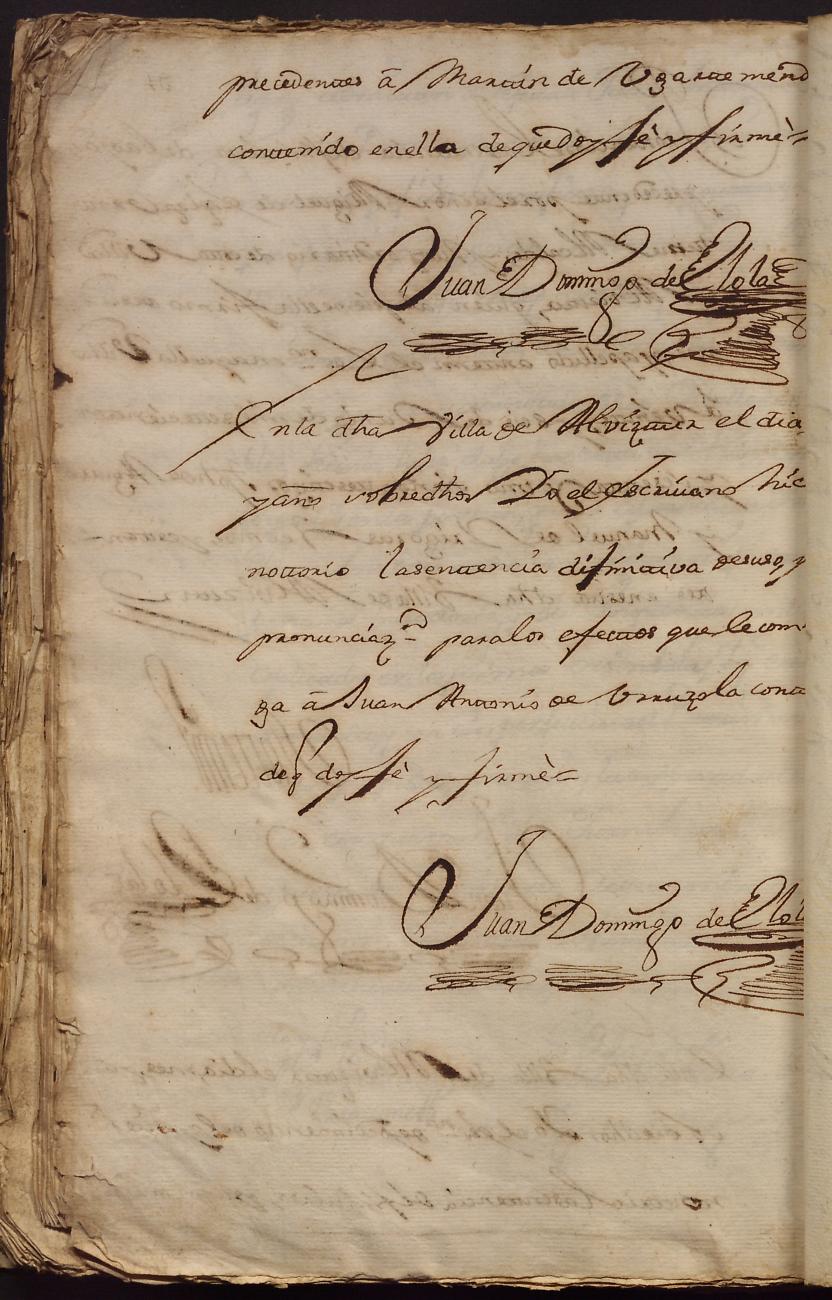 precedentes â Martin de Ugarte mend
contenido en ella de que doy fè y firmè=
Juan Domingo de Elola
En la dha Villa de Alvizttur el dia
y año sobredhos Yo el Escrivano hic
nottorio la sentencia difinitiva desuso, y
pronunciaz.on para los efectos que le com-
ga â Juan Antonio de Urruzola conte
de q doy fè y firmè=
Juan Domingo de Elola